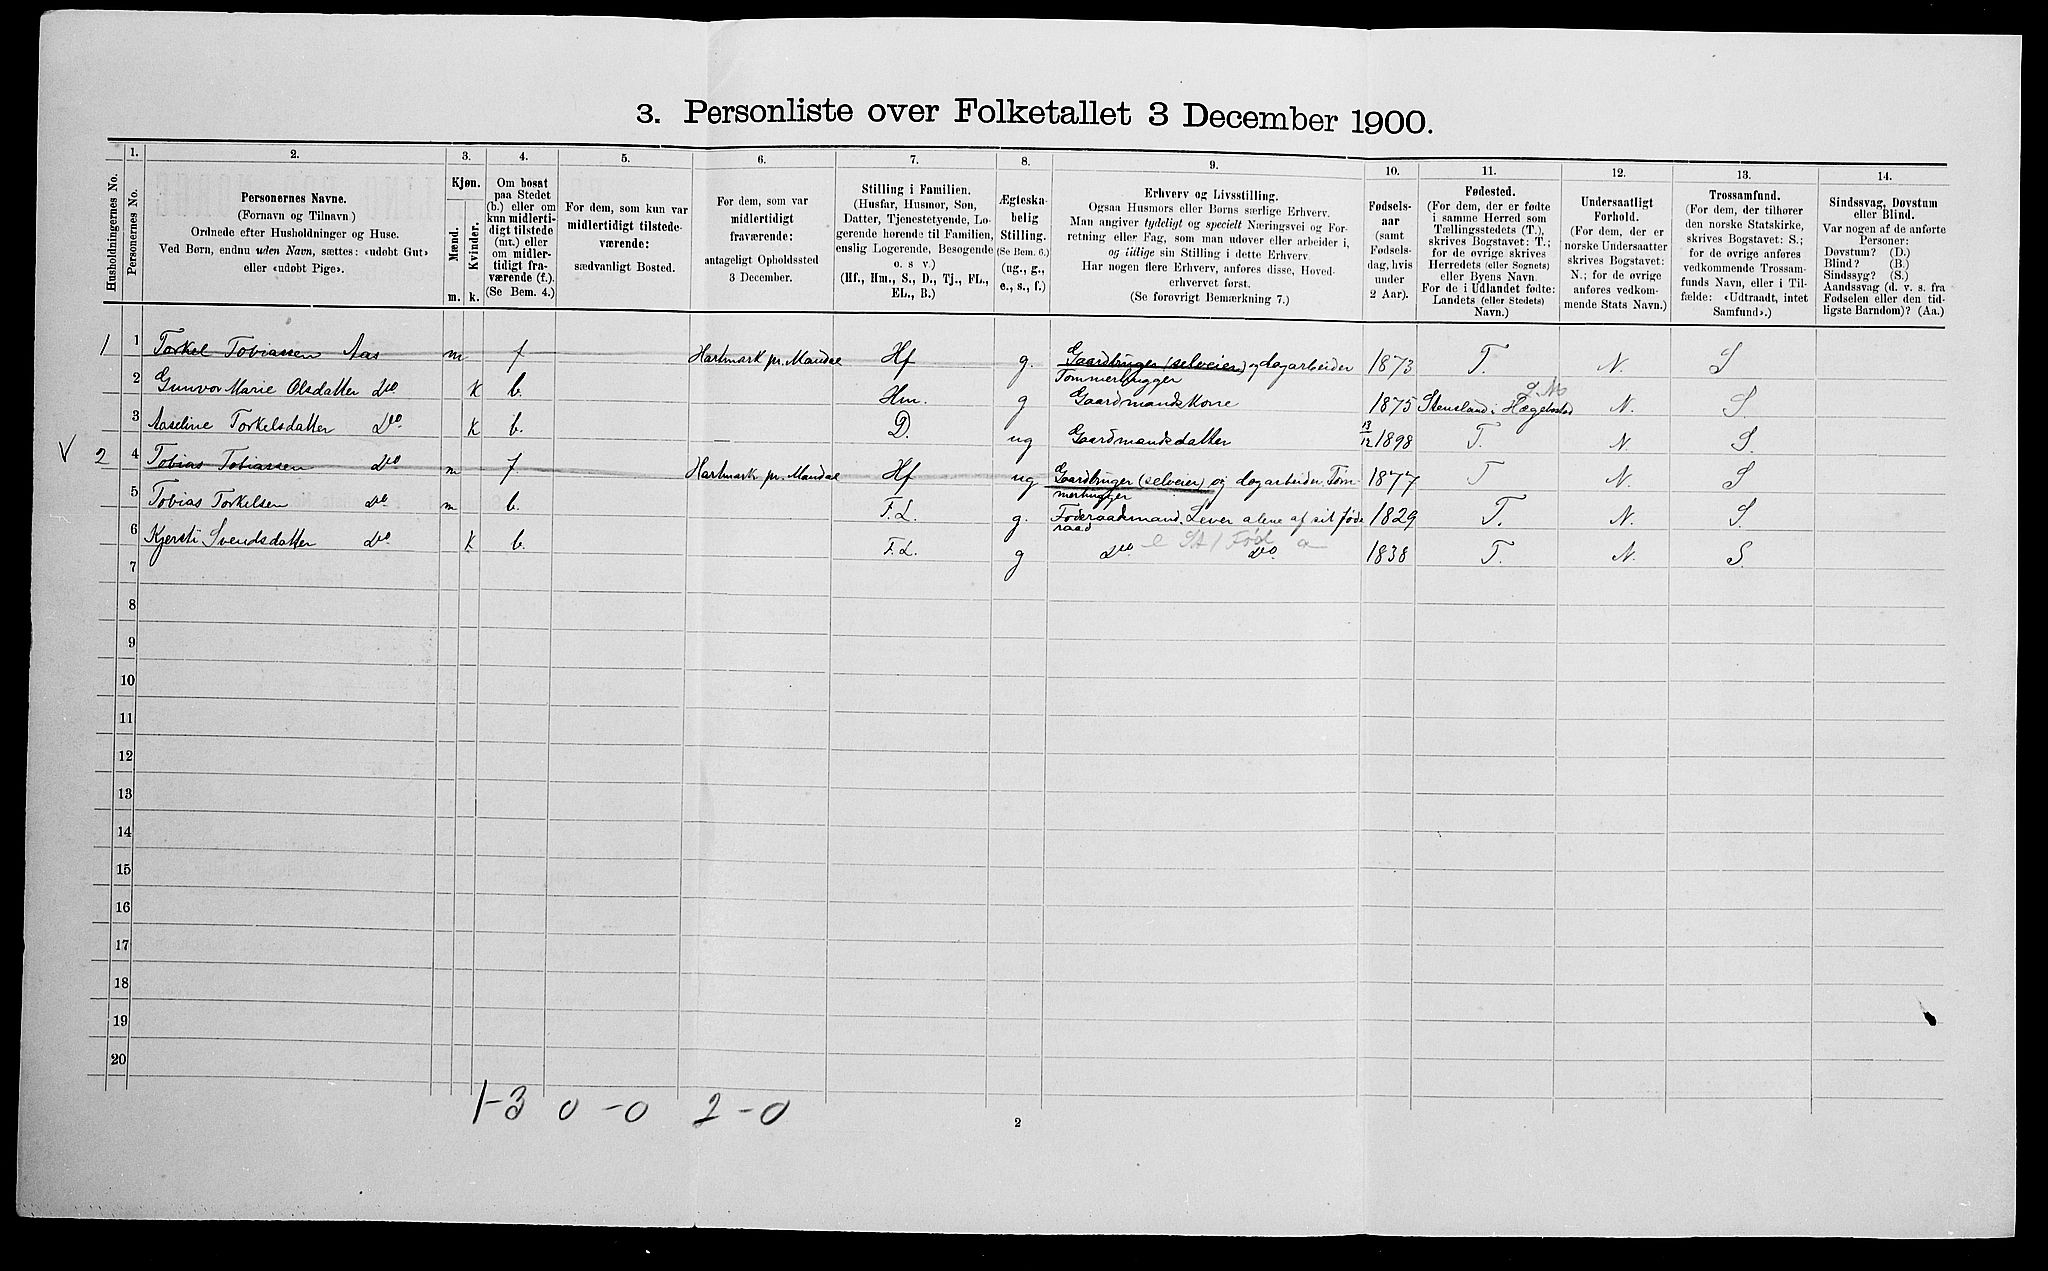 3. Personliste over Folketallet 3 December 1900.
Husholdningernes No.
1. Personernes No.
2. Personernes Navne.
(Fornavn og Tilnavn)
Ordnede efter Husholdninger og Huse.
Ved Børn, endnu uden Navn, sættes: «udøbt Gut»
eller «udøbt Pige».
3. Kjøn.
Mænd. Kvinder.
m. k.
4. Om bosat
paa Stedet
(b.) eller om
kun midlerti-
digt tilstede
(mt.) eller
om midler-
tidigt fra-
værende (f.).
(Se Bem. 4.)
5. For dem, som kun var
midlertidigt tilstede-
værende:
sædvanligt Bosted.
6. For dem, som var
midlertidigt
fraværende:
antageligt Opholdssted
3 December.
7. Stilling i Familien.
(Husfar, Husmor, Søn,
Datter, Tjenestetyende, Lo-
gerende hørende til Familien,
enslig Logerende, Besøgende
o. s v.)
(Hf., Hm., S., D., Tj., FL.,
EL., B.)
8. Ægteska-
belig
Stilling.
(Se Bem. 6.)
(ug., g.,
e., s., f.)
9. Erhverv og Livsstilling.
Ogsaa Husmors eller Børns særlige Erhverv.
Man angiver tydeligt og specielt Næringsvei og For-
retning eller Fag, som man udøver eller arbeider i,
og iidlige sin Stilling i dette Erhverv.
Har nogen flere Erhverv, anføres disse, Hoved-
erhvervet først.
(Se forøvrigt Bemærkning 7.)
10. Fødsels-
aar
(samt
Fødsels-
dag, hvis
under
2 Aar).
11. Fødested.
(For dem, der er fødte
i samme Herred som
Tællingsstedets (T.),
skrives Bogstavet: T.;
for de øvrige skrives
Herredets (eller Sognets)
eller Byens Navn.
For de i Udlandet fødte:
Landets (eller Stedets)
Navn.)
12. Undersaatligt
Forhold.
(For dem, der er
norske Undersaatter
skrives Bogstavet:
N.; for de øvrige
anføres vedkom-
mende Stats Navn.)
13. Trossamfund.
(For dem, der tilhører
den norske Statskirke,
skrives Bogstavet: S.;
for de øvrige anføres
vedkommende Trossam-
funds Navn, eller i Til-
fælde: «Udtraadt, intet
Samfund».)
14. Sindssvag, Døvstum
eller Blind.
Var nogen af de anførte
Personer:
Døvstum? (D.)
Blind? (B.)
Sindssyg? (S.)
Aandssvag (d. v. s. fra
Fødselen eller den tid-
ligste Barndom)? (Aa.)
1 1 Torkel Tobiassen Aas m f Hartmark pr. Mandal Hf g. Gaardbruger (selveier) og dagarbeider Tømmerhugger 1873 T. N. S
2 Gunvor Marie Olsdatter Do k b. Hm. g Gaardmandskone 1875 Stensland i Hægebostad N. S
3 Aaseline Torkelsdatter Do k b. D. ug Gaardmandsdatter 13/12 1898 T. N S.
V 2 4 Tobias Tobiassen Do m f Hartmark pr. Mandal Hf ug Gaardbruger (selveier) og dagarbeider Tøm
merhugger 1877 T N. S
5 Tobias Torkelsen Do m b. F.L. g. Føderaadmand. Lever alene af sit føde
raad 1829 T. N. S.
6 Kjersti Svendsdatter Do k b. F.L. g Do Do. 1838 T. N. S.
7
8
9
10
11
12
13
14
15
16
17
18
19
20
1-3 0-0 2-0
2